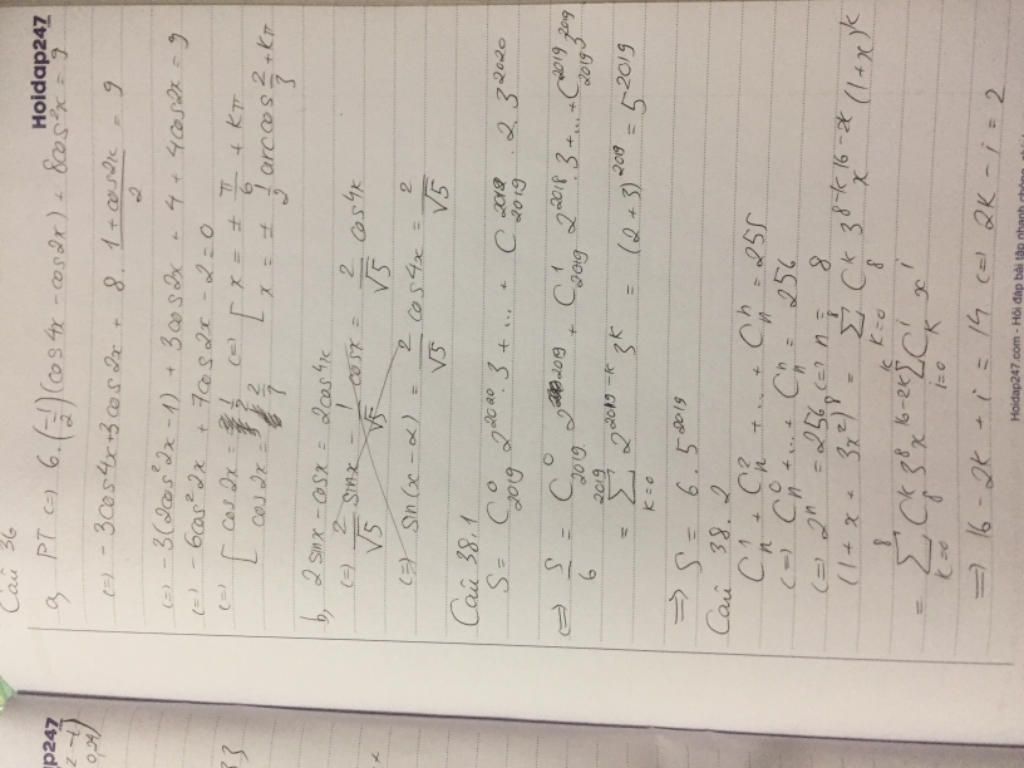 Hoidap247
Câu 36
a, PT (=) 6.(-1/2)(cos4x - cos2x) + 8cos²x = 9
(=) -3cos4x+3cos2x + 8. (1+cos2x)/2 = 9
(=) -3(2cos²2x-1) + 3cos2x + 4 + 4cos2x = 9
(=) -6cos²2x + 7cos2x - 2 = 0
(=) [ cos2x = 1/2 (=) [ x = ± π/6 + kπ
cos2x = 2/3 x = ± 1/2 arccos 2/3 + kπ
b, 2sinx - cosx = 2cos4x
(=) 2/√5 sinx - 1/√5 cosx = 2/√5 cos4x
(=) sin(x-α) = 2/√5 cos4x = 2/√5
Câu 38.1
S = C⁰₂₀₁₉ 2²⁰²⁰.3 + ... + C²⁰¹⁹₂₀₁₉ . 2. 3²⁰²⁰
(=) S/6 = C⁰₂₀₁₉ 2²⁰¹⁹ + C¹₂₀₁₉ 2²⁰¹⁸.3 + ... + C²⁰¹⁹₂₀₁₉ 3²⁰¹⁹
= ²⁰¹⁹∑ₖ₌₀ 2²⁰¹⁹⁻ᵏ 3ᵏ = (2+3)²⁰¹⁹ = 5²⁰¹⁹
=> S = 6. 5²⁰¹⁹
Câu 38.2
C¹ₙ + C²ₙ + ... + Cⁿₙ = 255
(=) C⁰ₙ + ... + Cⁿₙ = 256
(=) 2ⁿ = 256 (=) n = 8
(1 + x + 3x²)⁸ = ⁸∑ₖ₌₀ Cᵏ₈ 3⁸⁻ᵏ x¹⁶⁻²ᵏ (1+x)ᵏ
= ⁸∑ₖ₌₀ Cᵏ₈ 3⁸⁻ᵏ x¹⁶⁻²ᵏ ᵏ∑ᵢ₌₀ Cⁱₖ xⁱ
=> 16 - 2k + i = 14 (=) 2k - i = 2
Hoidap247.com - Hỏi đáp bài tập nhanh chóng
ap247